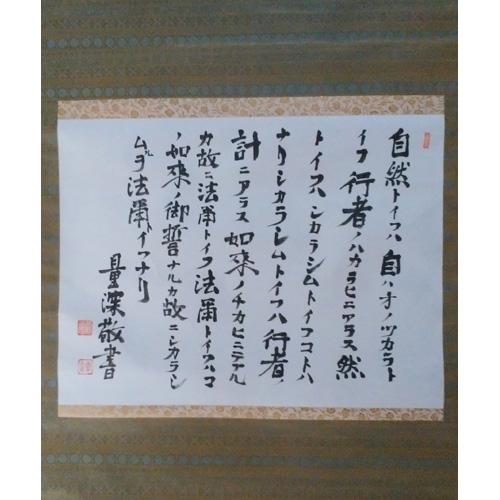 自然トイフハ自ハオノツカラト
イフ行者ノハカラヒニアラス然
トイフハシカラシムトイフコトハ
ナリシカラシムトイフハ行者ノ
計ニアラス如來ノチカヒニテアル
カ故ニ法爾トイフ法爾トイフハコ
ノ如來ノ御誓ナルカ故ニシカラシ
ムルヲ法爾トイフナリ
量深敬書